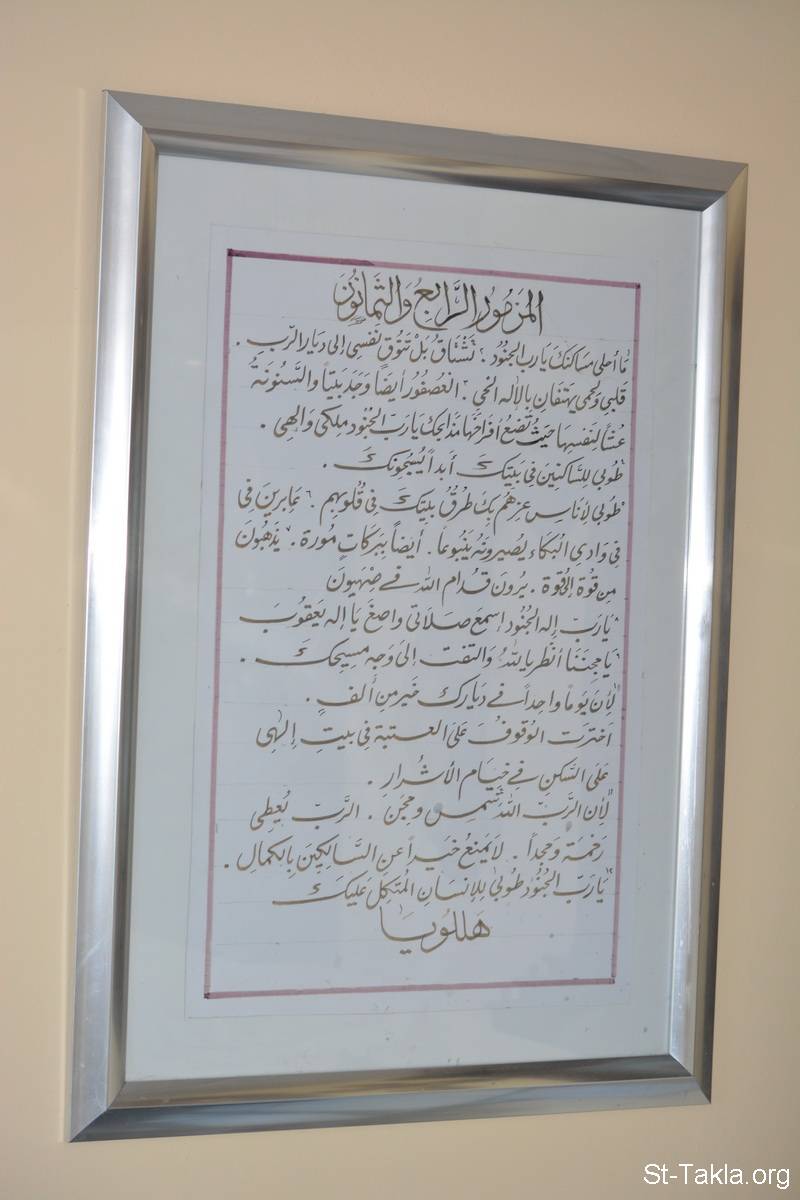 المَزمُورُ الرَّابعُ وَالثمَانُونَ
مَا أحلى مسَاكنكَ يَارَب الجنُود . تشْتاقُ بَلْ تتوُق نَفسِى إلى ديَارالرّب .
قلبِى وَلحمِى يهتفَانِ بالإله الحَي . العُصفُور أيضَاً وَجَدَ بَيتاً والسّنونَةُ
عُشاً لنَفسِهَا حَيثُ تضَع أفراخَهَا مَذابحكَ يَارَبّ الجنُود مَلكى وَالهِى .
طُوبى للسَّاكنِينَ فى بَيتِكَ أبَداً يُسبّحُونكَ .
طُوبى لأناسٍ عزهُم بكَ طرقُ بَيتكَ فى قلُوبهم . عَابرينَ فى
فى وَادىِ البُكَاء يصيرونَهُ يَنبُوعاً . أيضاً ببَركَاتٍ مُورة . يَذهَبُونَ
مِن قوُة إلى قوُة . يرُونَ قدَام الله فى صِهيَونَ
يَارَبّ إله الجنُود إسمع صَلَاتى واصغَ يَا إله يعَقوُبَ
يَامِجنَنَا أنظر يَاللهُ والتفت إلىَ وَجه مسِيحِكَ .
لأِنَ يَوماً واحِداً فى ديَارك خَير من ألفٍ .
اخترت الوُقوفُ عَلىَ العتبة فى بَيتِ إلهِى
عَلى السَّكن فى خيَام الأشرار .
لأِن الرَّبّ اللهُ شَمس ومجَن . الرَبّ يُعطِى
رَحمَة وَمَجداً . لَا يَمنعُ خَيراً عَنِ السَّالِكِينَ بالكمَالِ .
يَارَبّ الجنُود طُوبىَ للإنسَانِ المُتكِل عَليكَ
هَللوُيَا
St-Takla.org